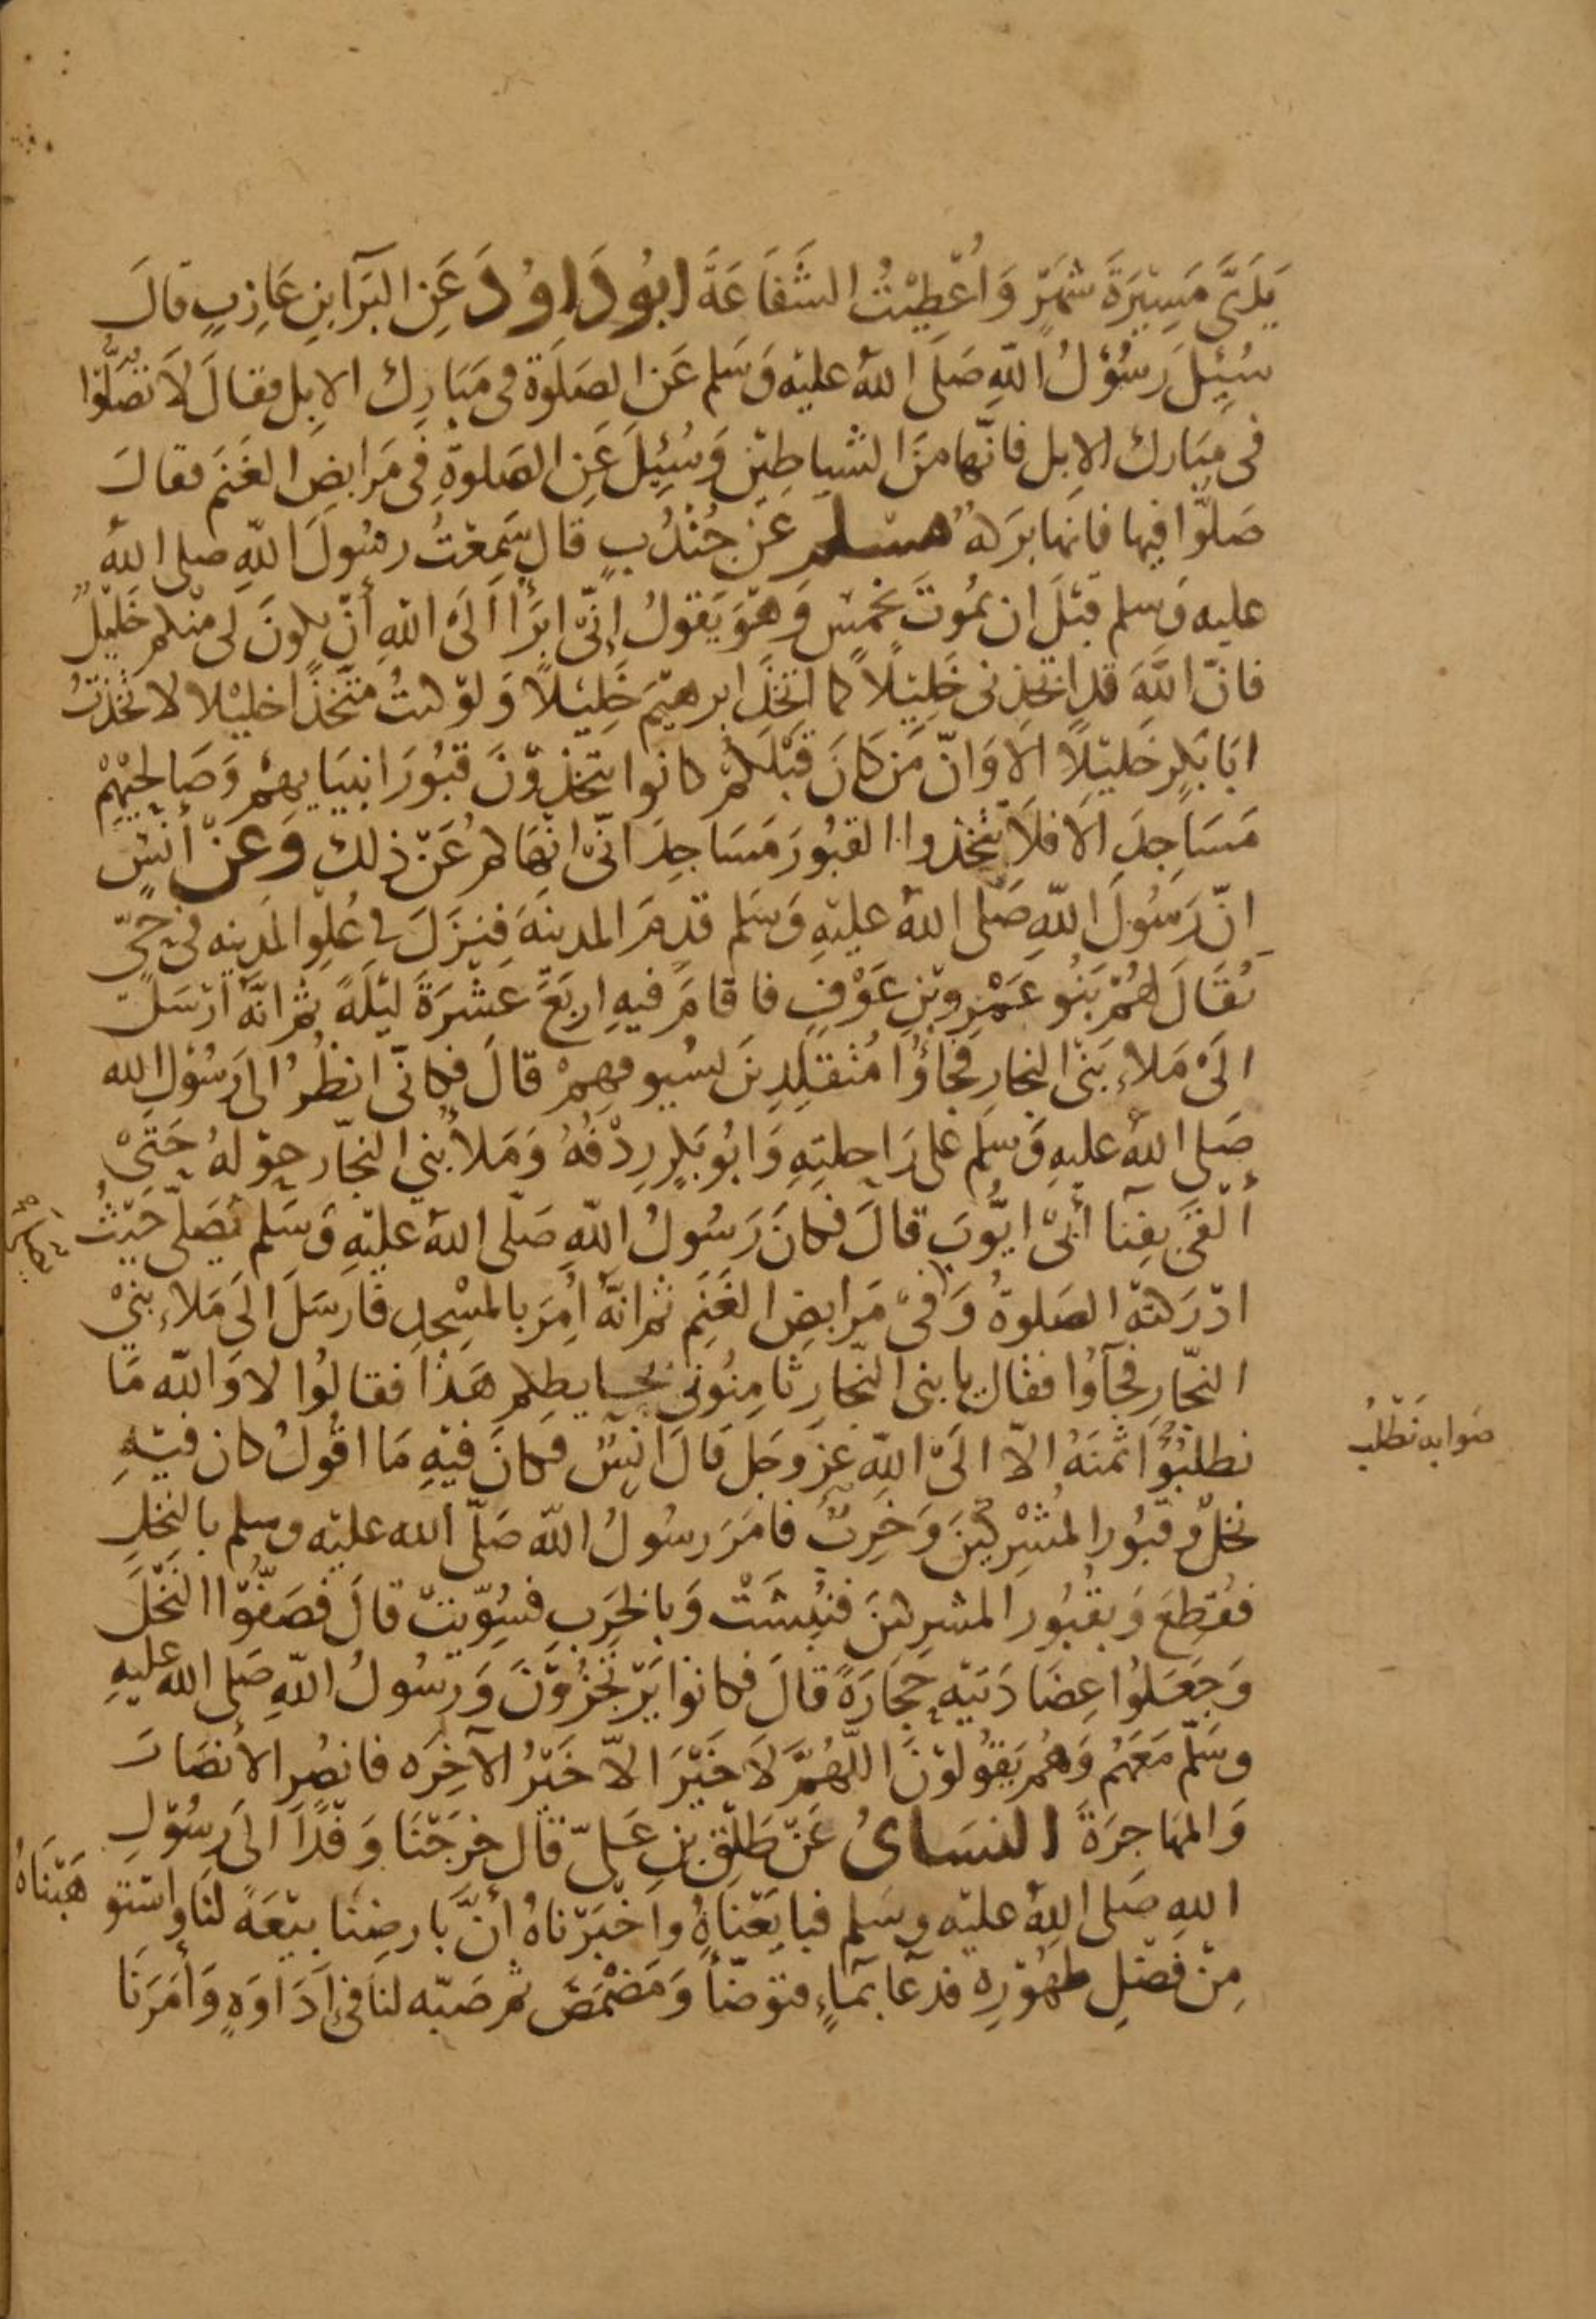 يَدَىَّ مَسِيْرَةَ شَهْرٍ وَاُعْطِيْتُ الشَّفَاعَةَ ابُو دَاوُدَ عَنِ البَرَآ ابنِ عَازِبٍ قَالَ
سُئِلَ رَسُوْلُ اللهِ صَلَى اللهُ عليْه وَسَلم عَنِ الصَلَوة فى مَبَارِك الابِلِ فقالَ لَا تُصَلّوا
فى مَبَارك الابِل فانّها مِنَ الشياطين وَسُئِلَ عَنِ الصَلوةِ فِى مَرَابِضِ الغَنَم فقالَ
صَلوّا فيها فانها بَركهٌ مسلم عَنْ جُنْدُبٍ قال سَمِعْتُ رسُولَ اللهِ صلى اللهُ
عليه وَسلم قبْلَ ان يمُوتَ بخَمْسٍ وَهوَ يَقولُ اِنّى ابرَأ اَلَى اللهِ أنْ يكونَ لى منكم خَليْلٌ
فانّ اللهَ قد اتخذنى خَلِيْلاً كما اتخَذَ ابرهيْمَ خَلِيْلاً وَلوْ كنتُ متّخذًا خليْلا لاتخذتُ
ابَا بَكرٍ خَليْلاً اَلَا وَانّ مَن كَانَ قَبْلَكمْ كانوا يتخذوْنَ قبُورَ انبيَايهِمْ وَصَالحِيْهِمْ
مَسَاجِدَ الَا فلَا تتّخذوا القبُورَ مَسَاجِدَ انّى انْهَاكم عَنْ ذلك وَعَنْ أَنَسٍ
انّ رَسُولَ اللهِ صَلّى اللهُ عليْهِ وَسَلم قدِمَ المدينَهَ فنَزَلَ فى عُلوِ المدينه فى حَىّ
يُقَالَ لهُمْ بَنُو عَمْرِو بْنِ عَوْفٍ فاقامَ فيهِ اربَعَ عشْرَةَ ليْلَةً ثم انّهُ ارْسَلَ
الَىْ مَلاءِ بَنى النجارِ فجاؤُا مُتقلِدِينَ بسُيوفهِمْ قالَ فكانّى انظُرُ الى رَسُوْلِ الله
صَلى اللهُ عليهِ وَسلم عَلى رَاحلتِهِ وَابُو بَكرٍ رِدْفُهُ وَمَلأُ بنى النجّارِ حوْلهُ حَتىْ
ألْقَى بفِنآ أبىْ ايُّوبَ قالَ فكانَ رَسُولُ اللهِ صَلّى اللهُ عَليْهِ وَسَلم يُصَلّى حَيْثُ
ادْرَكتْه الصَلوةُ وَفىْ مَرَابضِ الغَنَمِ ثم انّهُ اُمِرَ بالمسْجِدِ فارسَلَ الَى مَلاءِ بَنىْ
النجّارِ فجآؤُا فقال يا بنى النجّارِ ثامِنُونى بحايطِكم هَذَا فقالوُا لا وَاللهِ مَا
نطلبُوُا ثَمنَهُ الاّ الَى اللهِ عَزوَجَل قالَ انسٌ فكانَ فيْهِ مَا اقولُ كان فيْهِ
صَوَابه نَطْلُب
نخلٌ وقبُور المُشْرِكيْنَ وَخَرِبٌ فامَرَ رسُولُ اللهِ صَلّى الله عليْه وسلم بالنخْلِ
فقُطِعَ وَبقُبُور المشرِكينَ فنُبِشَتْ وَبالخَرِبِ فسُوّيَتْ قالَ فصَفُّوْا النَخْلَ
وَجَعَلوُا عِضَادَتيْهِ حِجَارَةً قالَ فكانوا يَرْتجُزوْنَ وَرسُولُ اللهِ صَلى اللهُ عليهِ
وسَلّم مَعَهُمْ وَهُمْ يَقوُلوْنَ اللهُمَّ لَا خَيْرَ الاّ خَيْرُ الآخِرَه فانصُرِ الأنصَارَ
وَالمهَاجِرَةَ النسَائ عَنْ طَلْقِ بنِ عَلىّ قالَ خرَجْنَا وَفْدًا الَى رَسُوْلِ
اللهِ صَلى اللهُ عليْه وسَلم فبايَعْناهُ واخْبَرْناهُ أنَّ بارضِنَا بيْعَةً لنَا واسْتو هَبْنَاهُ
مِنْ فضْلِ طهُوْرِهِ فدعَا بمَآءٍ فتوَضّأ وَمَضْمَضَ ثم صَبّه لنَا فى إدَاوَهٍ وَأمَرَنَا